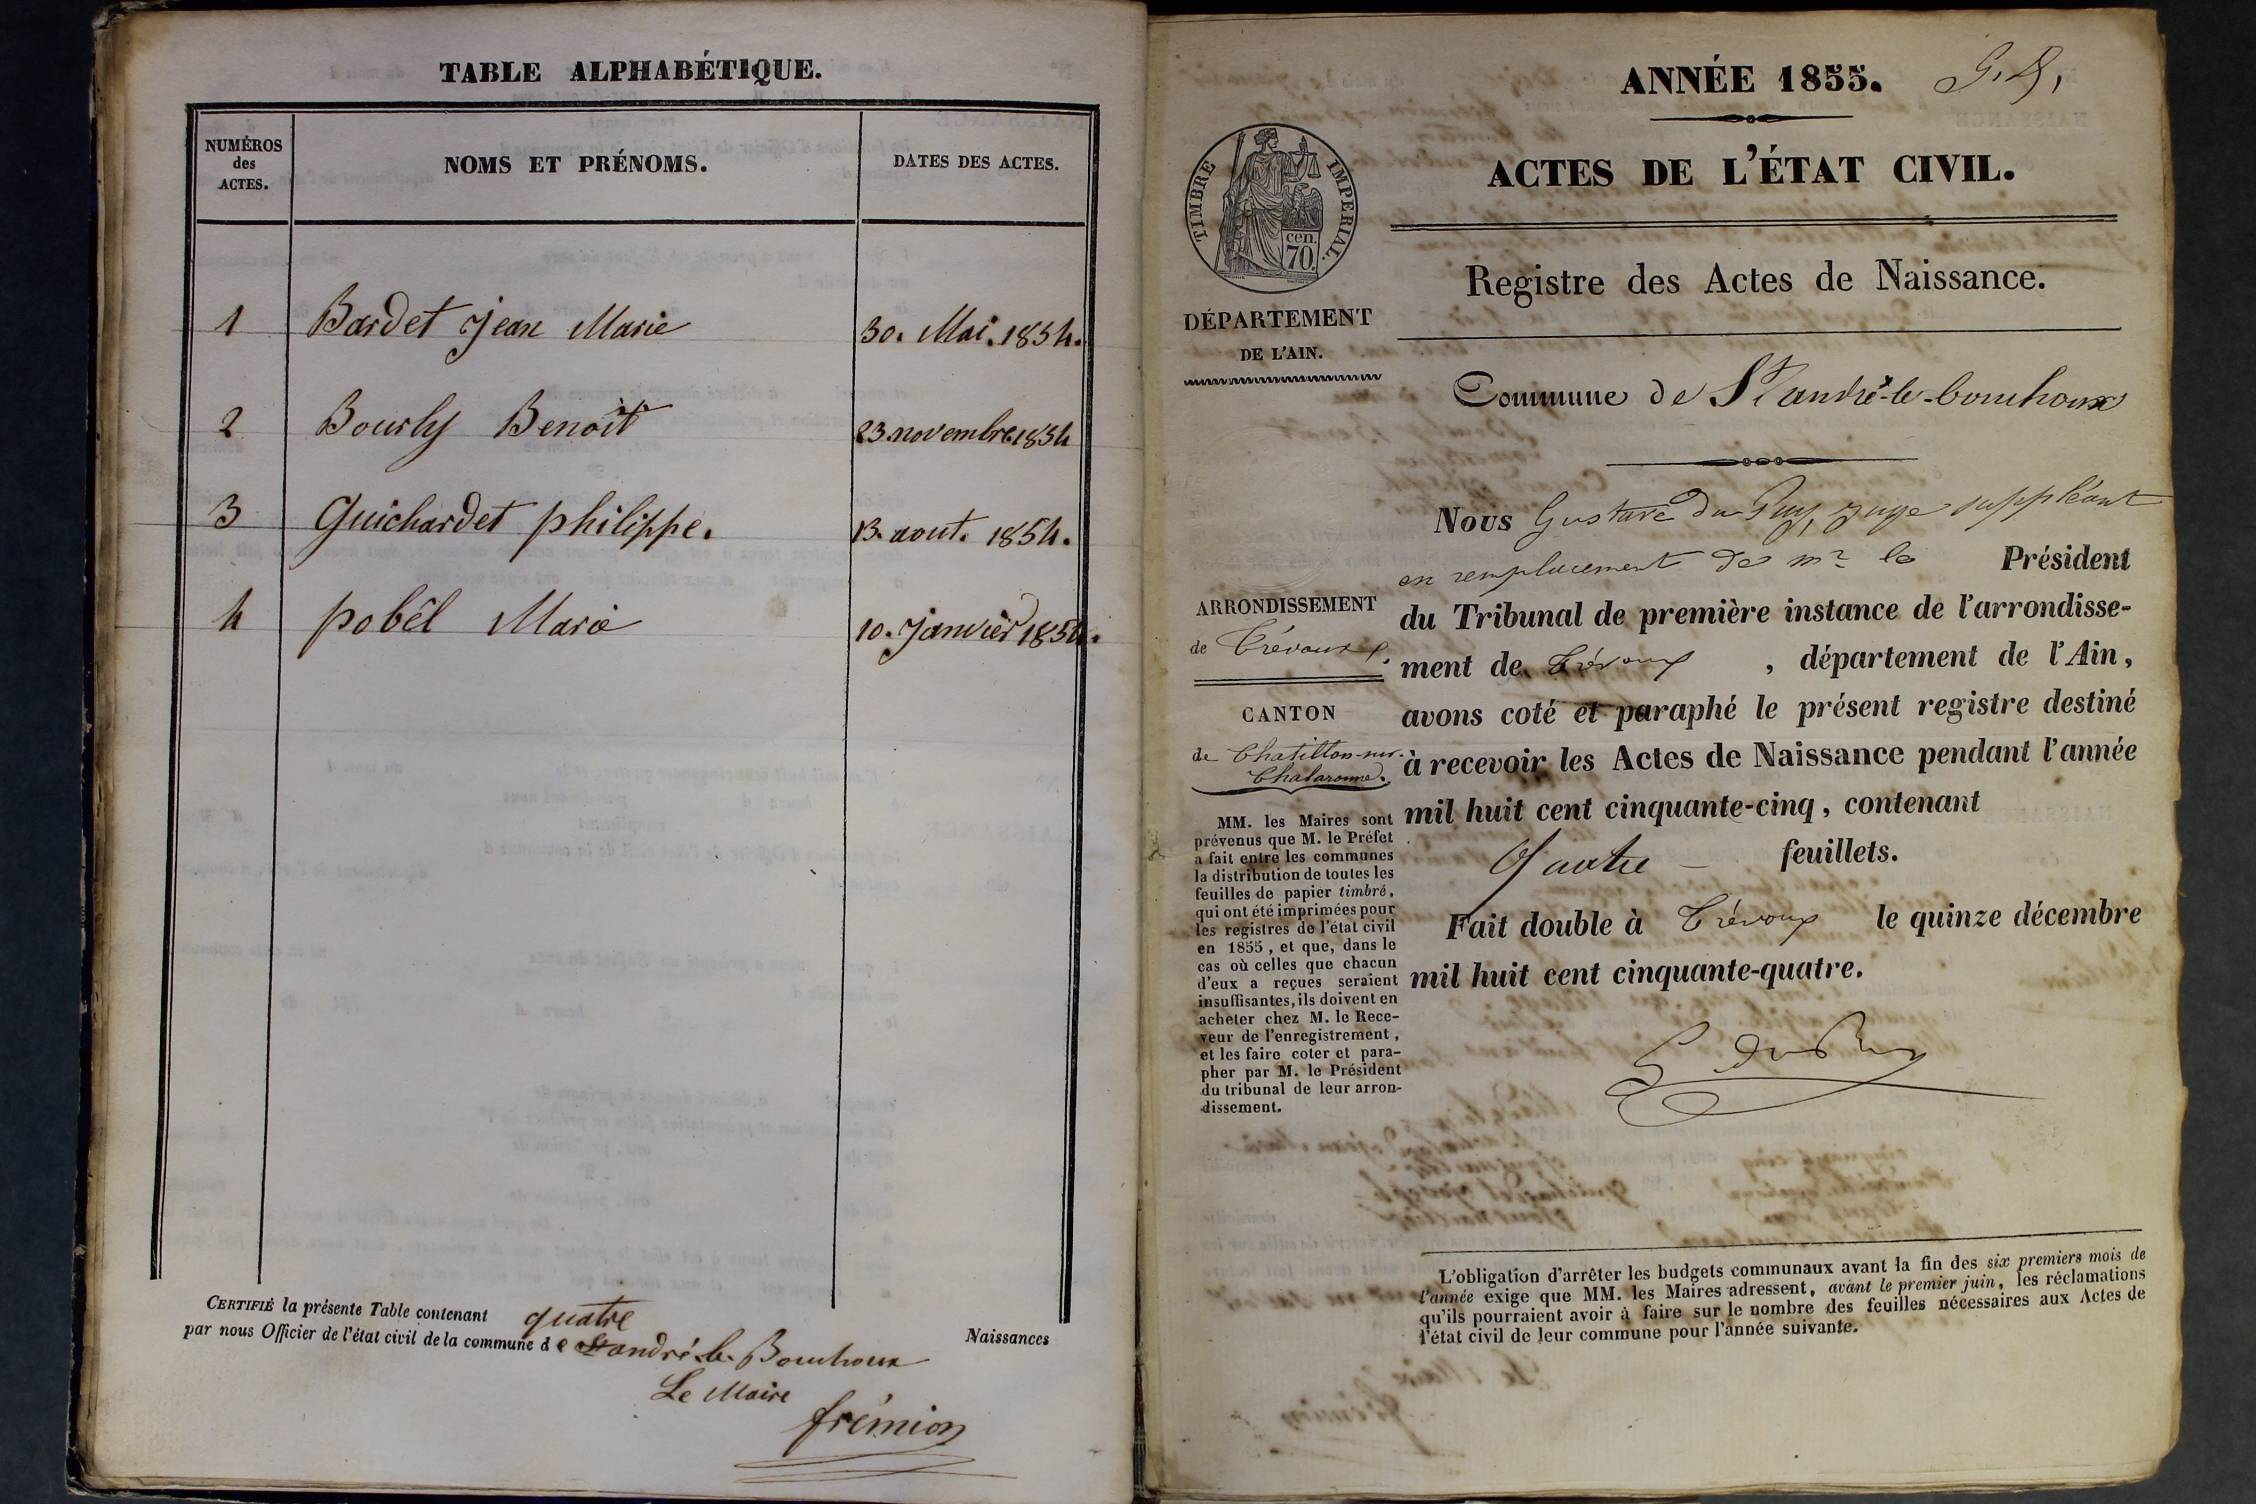 TABLE ALPHABÉTIQUE.
NUMÉROS
des
ACTES.
NOMS ET PRÉNOMS.
DATES DES ACTES.
1 Bardet Jean Marie 30. Mai. 1854.
2 Bourly Benoît 23. novembre 1854
3 Guichardet philippe. 13. aout. 1854.
4 pobêl Marie 10. Janvier 1854.
CERTIFIÉ la présente Table contenant quatre Naissances
par nous Officier de l'état civil de la commune de St andré-le-Bouchoux
Le Maire
frémion
ANNÉE 1855.
G. D,
TIMBRE IMPERIAL.
cen.
70.
ACTES DE L'ÉTAT CIVIL.
Registre des Actes de Naissance.
DÉPARTEMENT
DE L'AIN.
Commune de St andré-le-bouchoux
ARRONDISSEMENT
de Trévoux.
CANTON
de Chatillon-sur-
Chalaronne.
MM. les Maires sont
prévenus que M. le Préfet
a fait entre les communes
la distribution de toutes les
feuilles de papier timbré,
qui ont été imprimées pour
les registres de l'état civil
en 1855, et que, dans le
cas où celles que chacun
d'eux a reçues seraient
insuffisantes, ils doivent en
acheter chez M. le Rece-
veur de l'enregistrement,
et les faire coter et para-
pher par M. le Président
du tribunal de leur arron-
dissement.
Nous Gustave du Puy, juge suppléant
en remplacement de mr le Président
du Tribunal de première instance de l'arrondisse-
ment de Trévoux, département de l'Ain,
avons coté et paraphé le présent registre destiné
à recevoir les Actes de Naissance pendant l'année
mil huit cent cinquante-cinq, contenant
Quatre feuillets.
Fait double à Trévoux le quinze décembre
mil huit cent cinquante-quatre.
G du Puy
L'obligation d'arrêter les budgets communaux avant la fin des six premiers mois de
l'année exige que MM. les Maires adressent, avant le premier juin, les réclamations
qu'ils pourraient avoir à faire sur le nombre des feuilles nécessaires aux Actes de
l'état civil de leur commune pour l'année suivante.